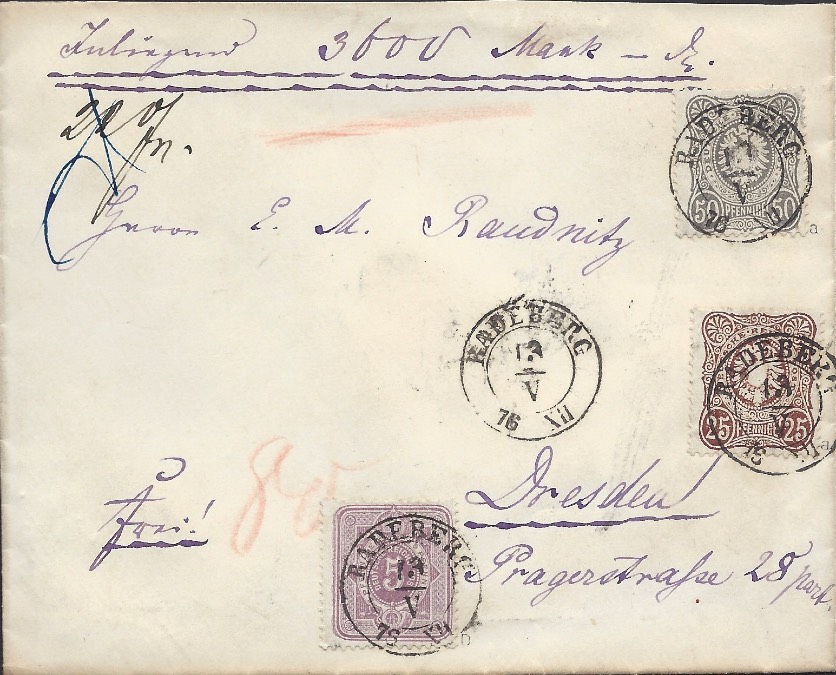 Inliegend 3600 Mark
RADEBERG
V
76
50 PFENNIG 50
a
Herrn E. M. Raudnitz
RADEBERG
13
V
76 XII
RADEBERG
13
V
76
25 PFENNIG 25
a
Dresden
frei!
RADEBERG
13
V
76
5
b
Pragerstraße 28 part.